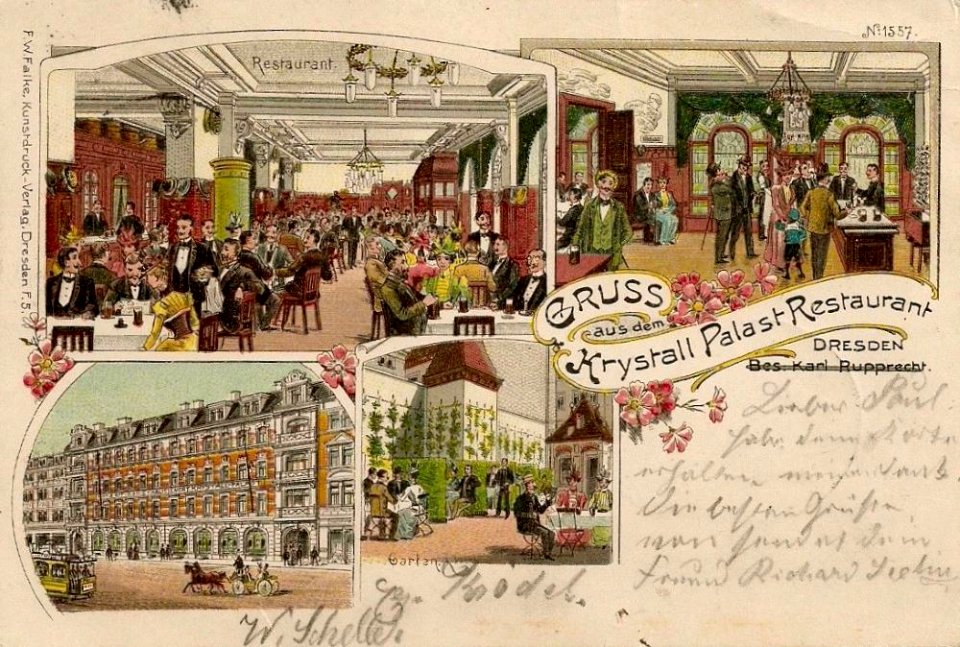 No 1557.
Restaurant.
GRUSS
aus dem
Krystall Palast-Restaurant
DRESDEN
Bes. Karl Rupprecht.
Lieber Paul.
habe deine Karte
erhalten
Die besten Grüße
von
Freund Richard
Garten
W.
F. W. Falke, Kunstdruck-Verlag, Dresden F. 5.